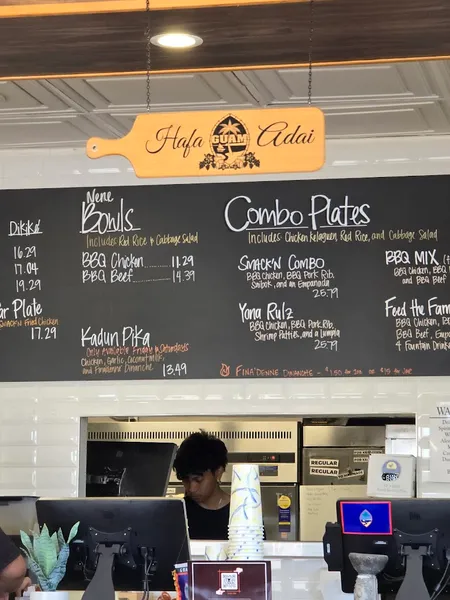 Hafa
GUAM
Adai
Dikiki'
16.29
17.04
19.29
Plate
Fried Chicken
17.29
Nene
Bowls
Includes Red Rice & Cabbage Salad
BBQ Chicken ........ 11.29
BBQ Beef ........ 14.39
Kadun Pika
Only Available Friday & Saturdays
Chicken, Garlic, Coconut milk,
and Finadenne Dinanche
13.49
Combo Plates
Includes Chicken Kelaguen, Red Rice, and Cabbage Salad
Smack'n Combo
BBQ Chicken, BBQ Pork Rib,
and an Empanada
25.79
Yona Rulz
BBQ Chicken, BBQ Pork Rib,
Shrimp Patties, and a Lumpia
25.79
BBQ Mix
BBQ Chicken, BBQ
and BBQ Beef
Feed the Fam
BBQ Chicken,
BBQ Beef,
4 Fountain Drink
Fina'denne Dinanche -
REGULAR
REGULAR
WA